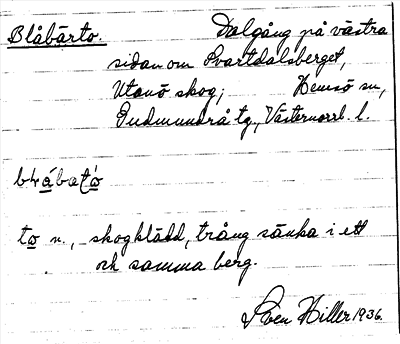 Blåbärto. Dalgång på västra
sidan om Svartdalsberget,
Utanö skog; Hemsö sn,
Gudmundrå tg, Västernorrl. l.
to n., skogklädd, trång sänka i ett
och samma berg.
Sven Hiller 1936.